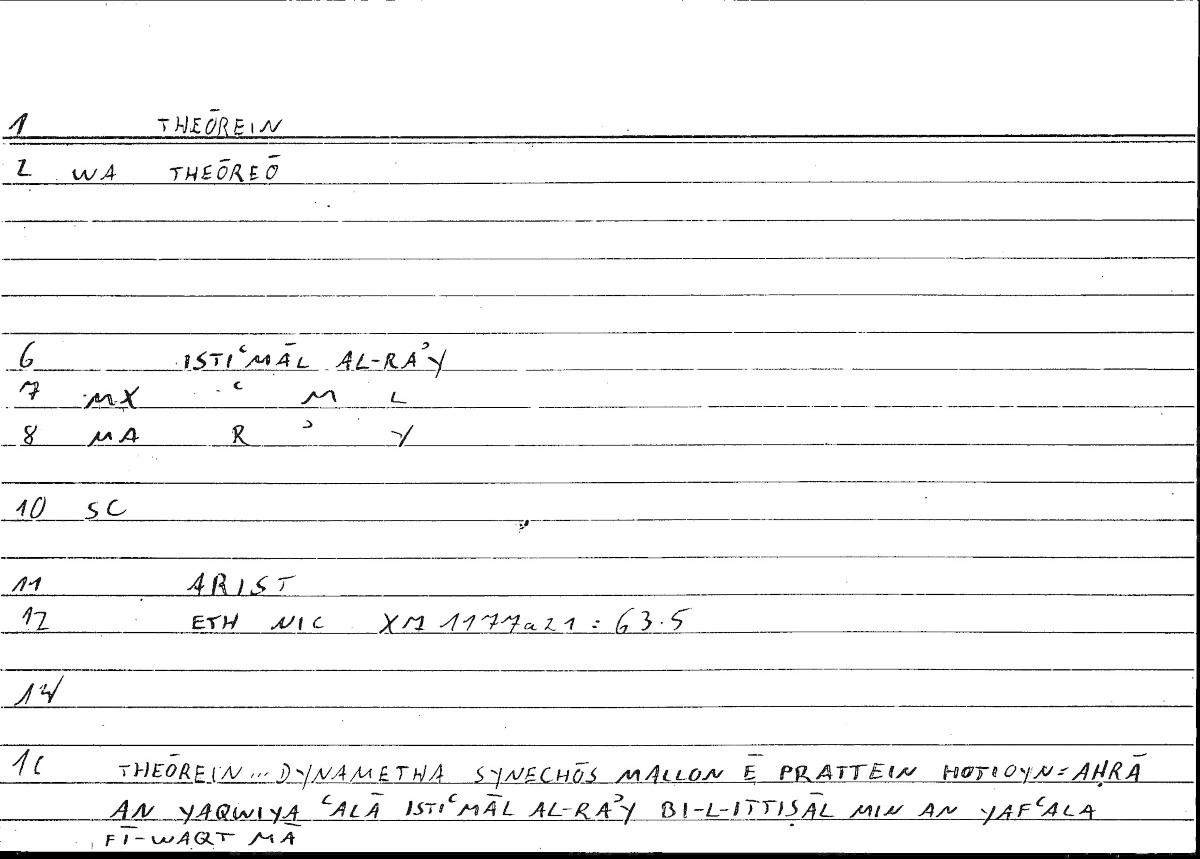 1 THEŌREIN
2 WA THEŌREŌ
6 ISTIʿMĀL AL-RAʾY
7 MX ʿ M L
8 MA R ʾ Y
10 SC
11 ARIST
12 ETH NIC X71177a21 : 63.5
14
16 THEŌREIN... DYNAMETHA SYNECHŌS MALLON Ē PRATTEIN HOTIOYN = AḤRĀ
AN YAQWIYA ʿALĀ ISTIʿMĀL AL-RAʾY BI-L-ITTIṢĀL MIN AN YAFʿALA
FĪ-WAQT MĀ